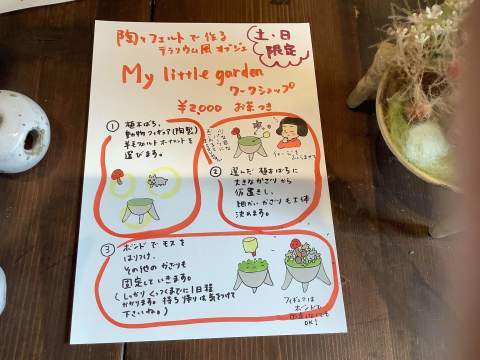 陶とフェルトで作る
テラリウム風オブジェ
土・日
限定
My little garden
ワークショップ
¥2,000 お茶つき
① 植木ばち、
動物フィギュア(陶製)
羊毛フェルトオーナメントを
選びます。
② 選んだ植木ばちに
大きなかざりから
仮置きし、
細かいかざりも大体
決めます。
③ ボンドでモスを
はりつけ、
その他のかざりも
固定していきます。
(しっかりくっつくまでに1日程
かかります。持ち帰りは気をつけて
下さいね。)
フィギュアは
ボンドで
OK!